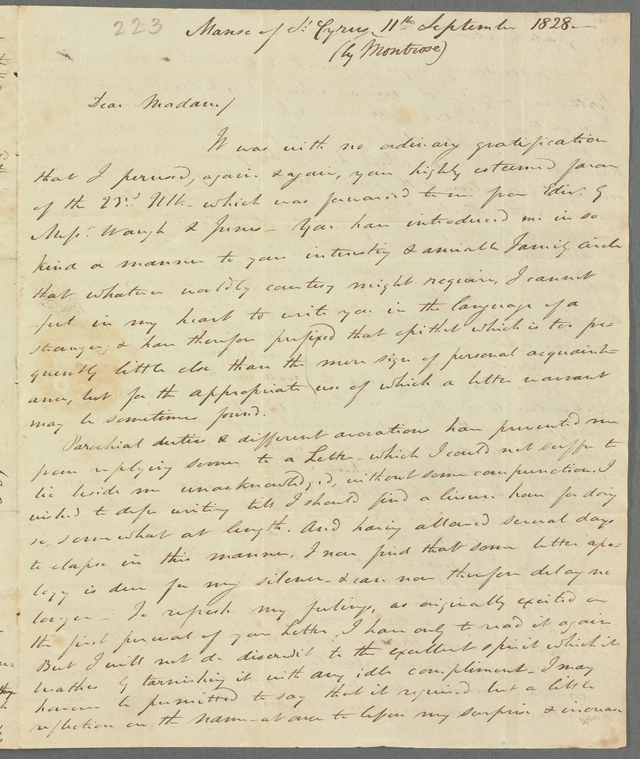 223
Manse of St. Cyrus, 11th September 1828.
(by Montrose)
Dear Madam,
It was with no ordinary gratification
that I perused, again & again, your highly esteemed favor
of the 23rd Ulto. which was forwarded to me from Edinr. by
Messrs. Waugh & Innes. You have introduced me in so
kind a manner to your interesting & amiable family circle
that whatever worldly courtesy might require, I cannot
feel in my heart to write you in the language of a
stranger; & have therefore prefixed that epithet which is too fre-
quently little else than the mere sign of personal acquaint-
ance, but for the appropriate use of which a better warrant
may be sometimes found.
Parochial duties & different avocations have prevented me
from replying sooner to a Letter which I could not suffer to
lie beside me unacknowledged, without some compunction. I
wished to defer writing till I should find a leisure hour for doing
so, somewhat at length. And having allowed several days
to elapse in this manner, I now find that some better apo-
logy is due for my silence & can now therefore delay no
longer. To refresh my feelings, as originally excited on
the first perusal of your Letter, I have only to read it again
But I will not do discredit to the excellent spirit which it
breathes by tarnishing it with any idle compliment. I may
however be permitted to say that it required but a little
reflection on the name at once to lessen my surprise & increase